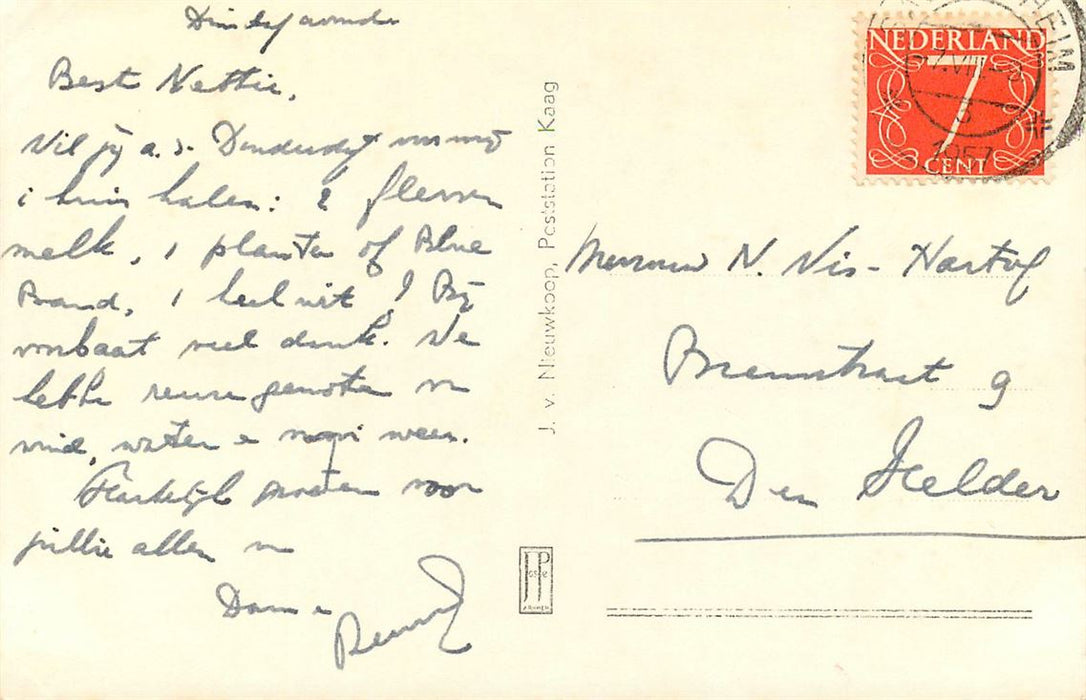 Dinsdagavond
Best Nettie,
Wil jij a.s. Donderdag voor mij
in huis halen: 2 flessen
melk, 1 planta of Blue
Band, 1 heel wit! Bij
voorbaat veel dank. We
hebben reuze genoten van
wind, water en mooi weer.
Hartelijke groeten voor
jullie allen van
J. v. Nieuwkoop, Poststation Kaag
JP
NEDERLAND
7
CENT
HEIM
1957
Mevrouw N. Vis-Hartog
9
Den Helder